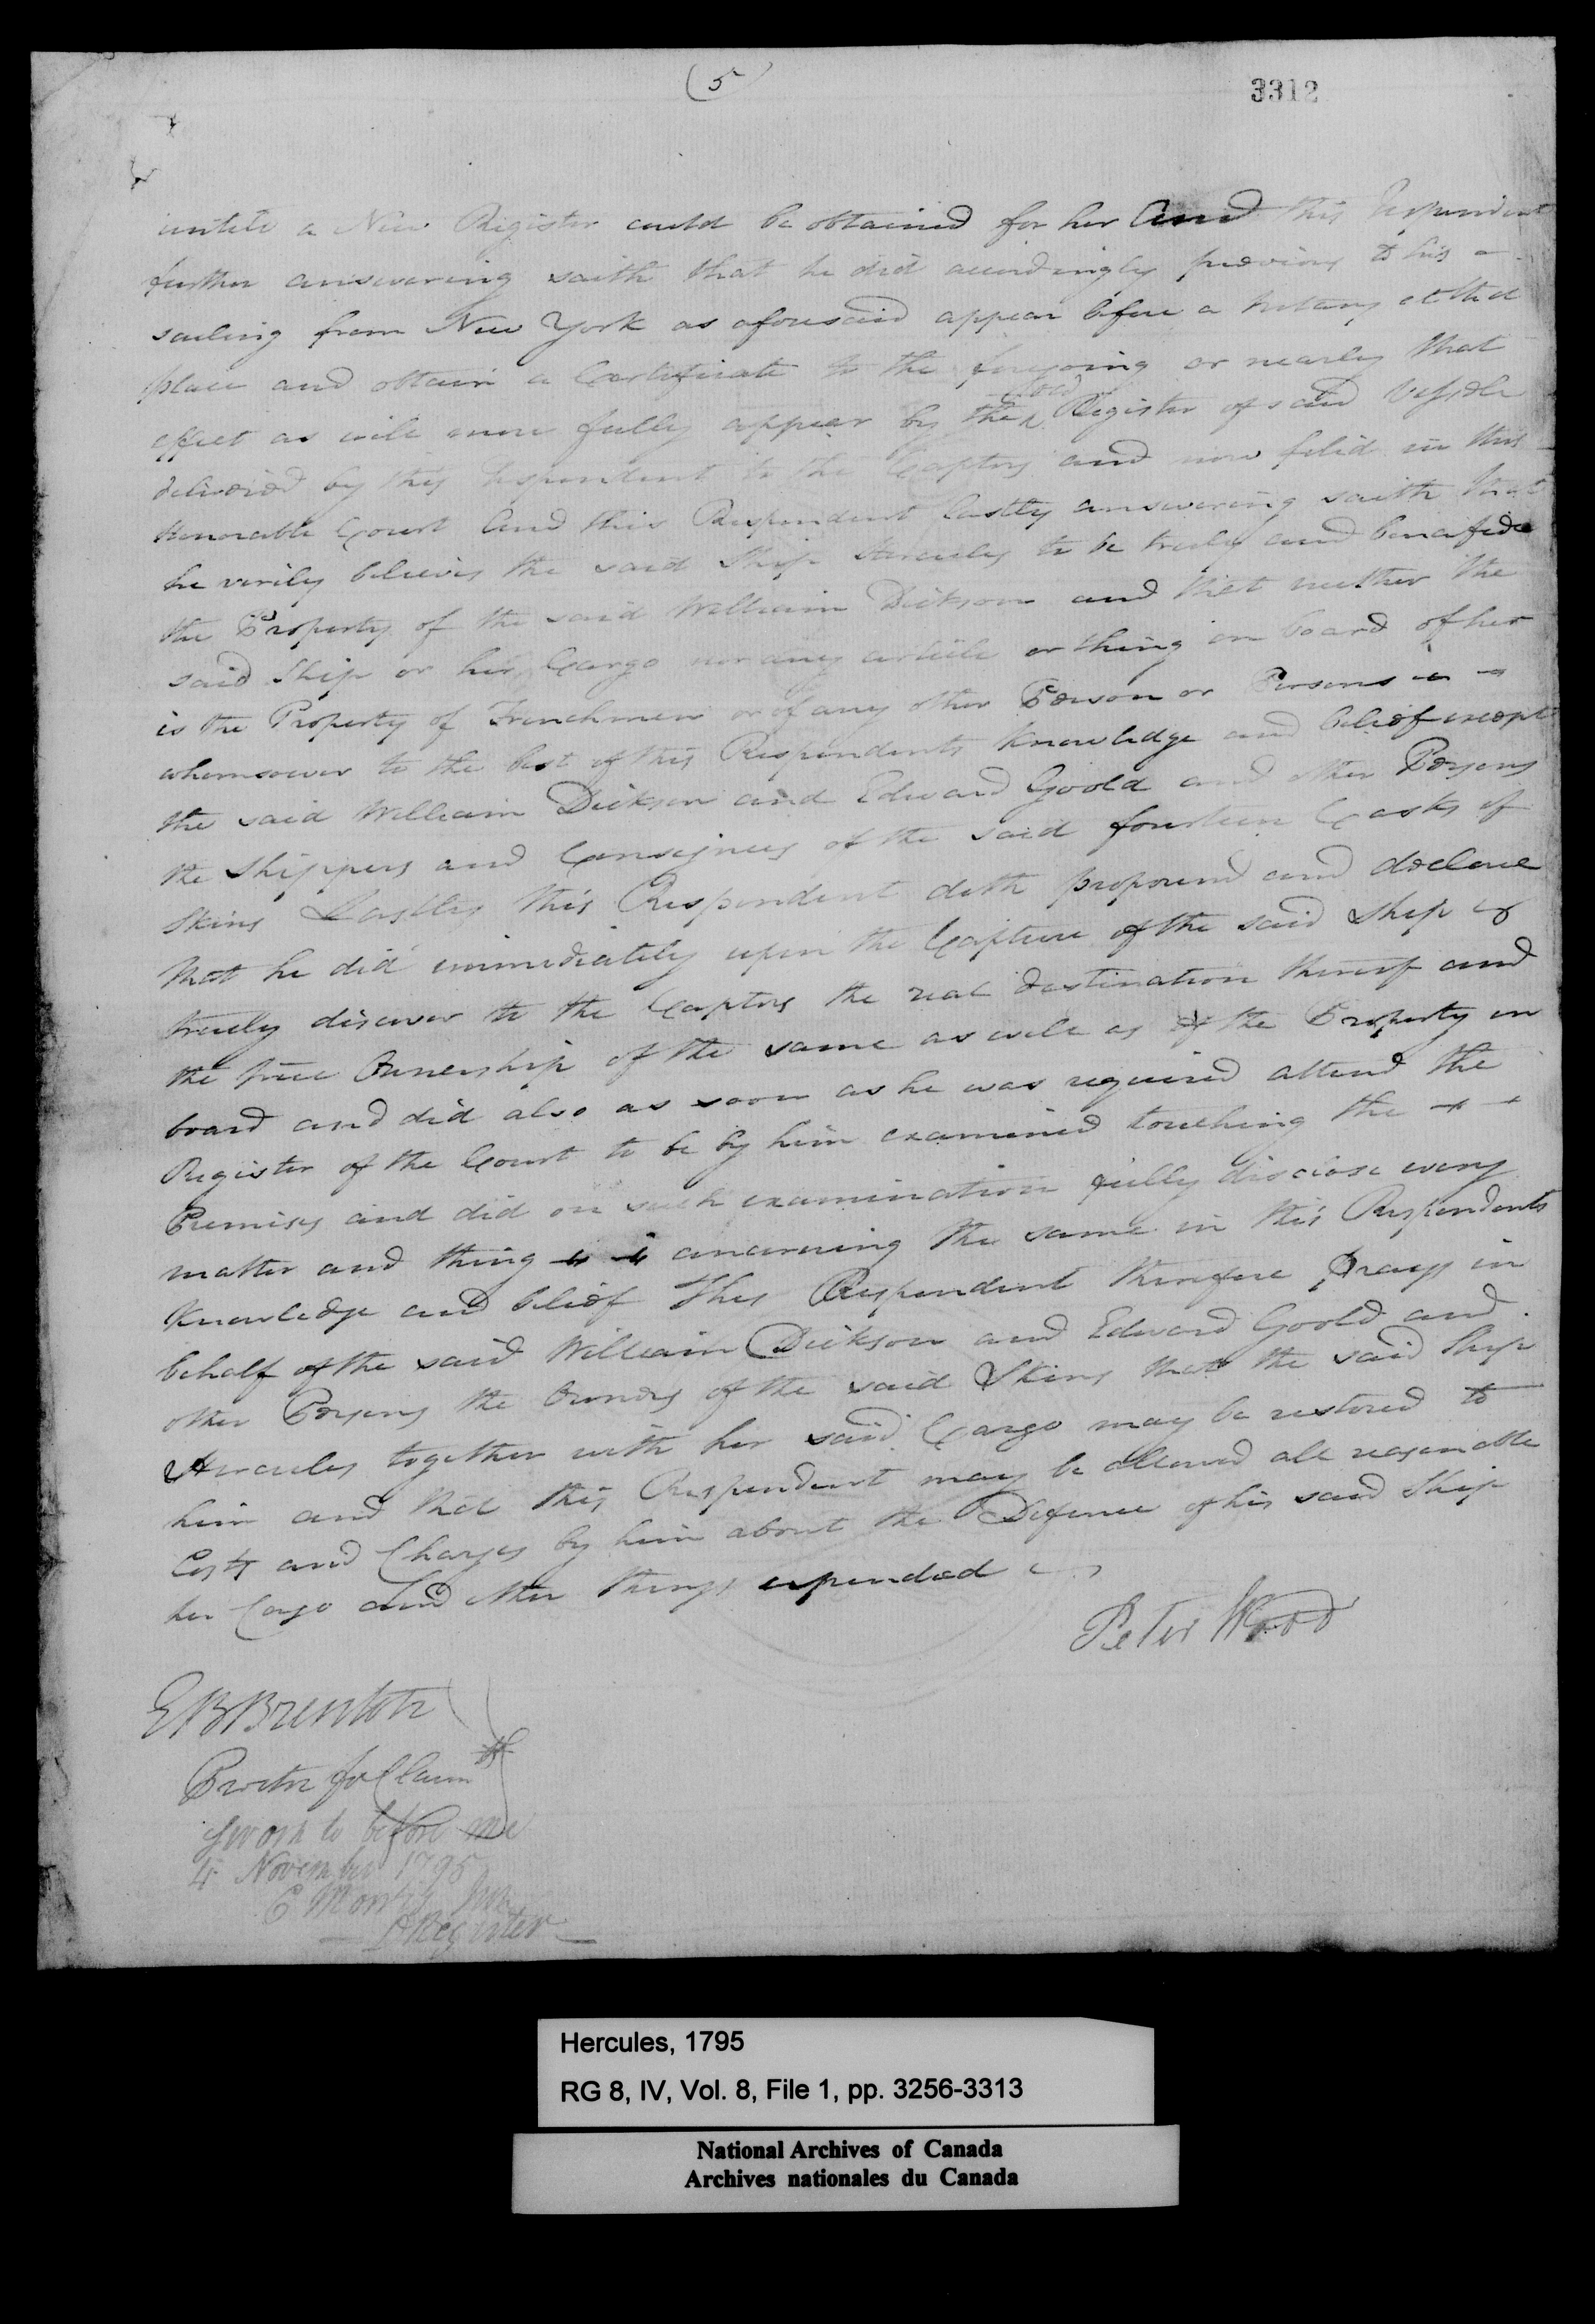 (5)
3312
untill a New Register could be obtained for her And this Respondent
further answering saith that he did accordingly previous to his
sailing from New York as aforesaid appear before a Notary at that
place and obtain a Certificate to the foregoing or nearly that
effect as will more fully appear by the Register of said Vessell
delivered by this Respondent to the Captors and now filed in this
Honorable Court And this Respondent lastly answering saith that
he verily believes the said Ship Hercules to be truly and bonafide
the Property of the said William Dickson and that neither the
said Ship or her Cargo nor any article or thing on board of her
is the Property of Frenchmen or of any other Person or Persons
whomsoever to the best of this Respondents knowledge and belief except
the said William Dickson and Edward Goold and other Persons
the Shippers and Consignees of the said fourteen Casks of
Skins Lastly this Respondent doth propound and declare
that he did immediately upon the Capture of the said Ship
truely discover to the Captors the real destination thereof and
the true Ownership of the same as well as of the Property on
board and did also as soon as he was required attend the
Register of the Court to be by him examined touching the
Premises and did on such examination fully disclose every
matter and thing concerning the same in this Respondents
Knowledge and belief This Respondent therefore Prays in
behalf of the said William Dickson and Edward Goold and
other Persons the Owners of the said Skins that the said Ship
Hercules together with her said Cargo may be restored to
him and that this Respondent may be allowed all reasonable
Costs and Charges by him about the Defence of his said Ship
her Cargo and other things expended
Peter Wood
E B Brenton
Proctor for Claimts
Sworn to before me
4 November 1795
C Morris Junr
D Register
Hercules, 1795
RG 8, IV, Vol. 8, File 1, pp. 3256-3313
National Archives of Canada
Archives nationales du Canada